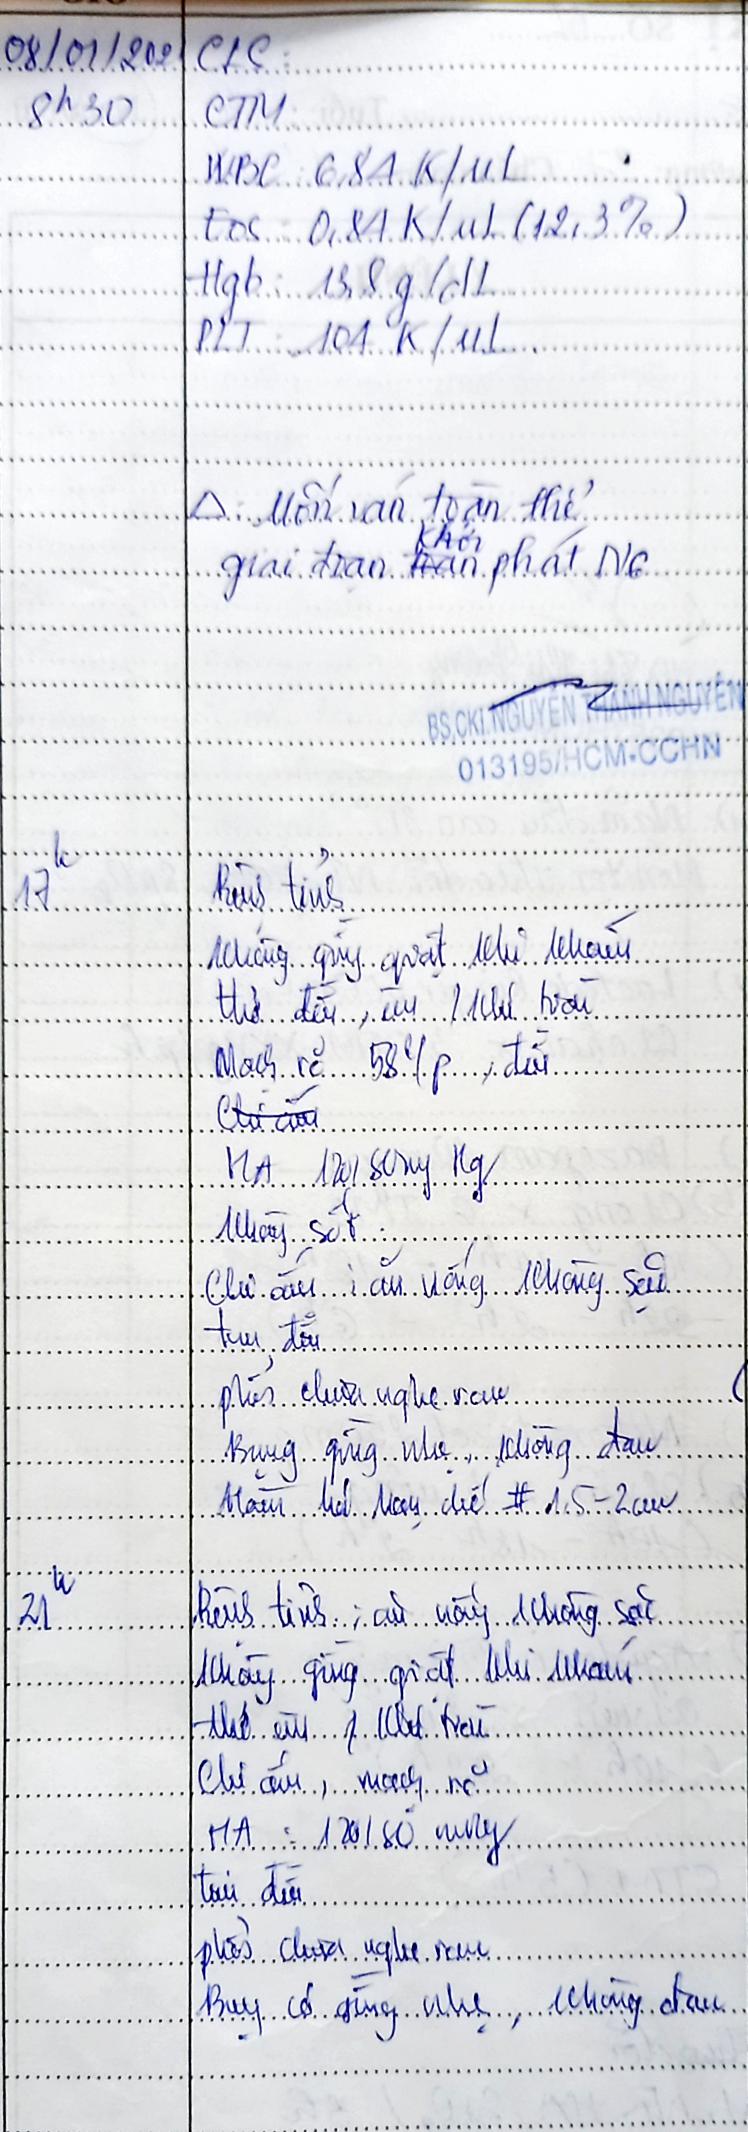 08/01/202 CLS:
8h30 CTM:
WBC: 6,84 K/uL
Eos: 0,84 K/uL (12,3%)
Hgb: 13,8 g/dL
PLT: 104 K/uL.
Δ: Uốn ván toàn thể
giai đoạn khởi phát N6
BS.CKI. NGUYỄN THANH NGUYÊN
013195/HCM-CCHN
17h Bệnh tỉnh
không gồng giật khi khám
thở đều, êm / khí trời
Mạch rõ 58 l/p, đều
Chi ấm
HA 120/80 mmHg
không sốt
Chi ấm; ăn uống không sặc
tim đều
phổi chưa nghe ran
Bụng gồng nhẹ, không đau
Há 1.5-2cm
21h Bệnh tỉnh; ăn uống không sặc
không gồng giật khi khám
thở êm / khí trời
Chi ấm, mạch rõ
HA: 120/80 mmHg
tim đều
phổi chưa nghe ran
Bụng có gồng nhẹ, không đau